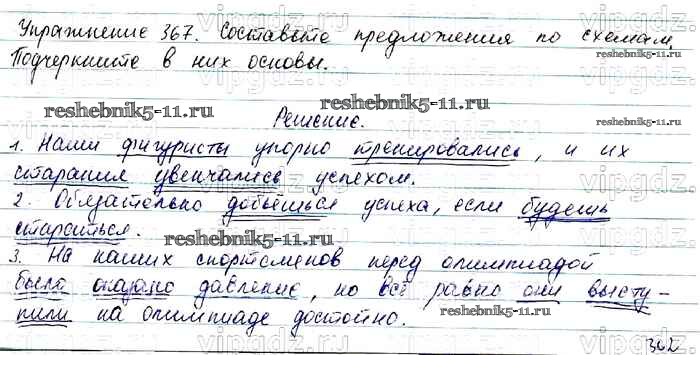 Упражнение 367. Составьте предложения по схемам.
Подчеркните в них основы.
reshebnik5-11.ru reshebnik5-11.ru
Решение.
1. Наши фигуристы упорно тренировались, и их
старания увенчались успехом.
reshebnik5-11.ru
2. Обязательно добьёшься успеха, если будешь
стараться.
reshebnik5-11.ru
3. На наших спортсменов перед олимпиадой
было оказано давление, но всё равно они высту-
пили на олимпиаде достойно.
reshebnik5-11.ru
362